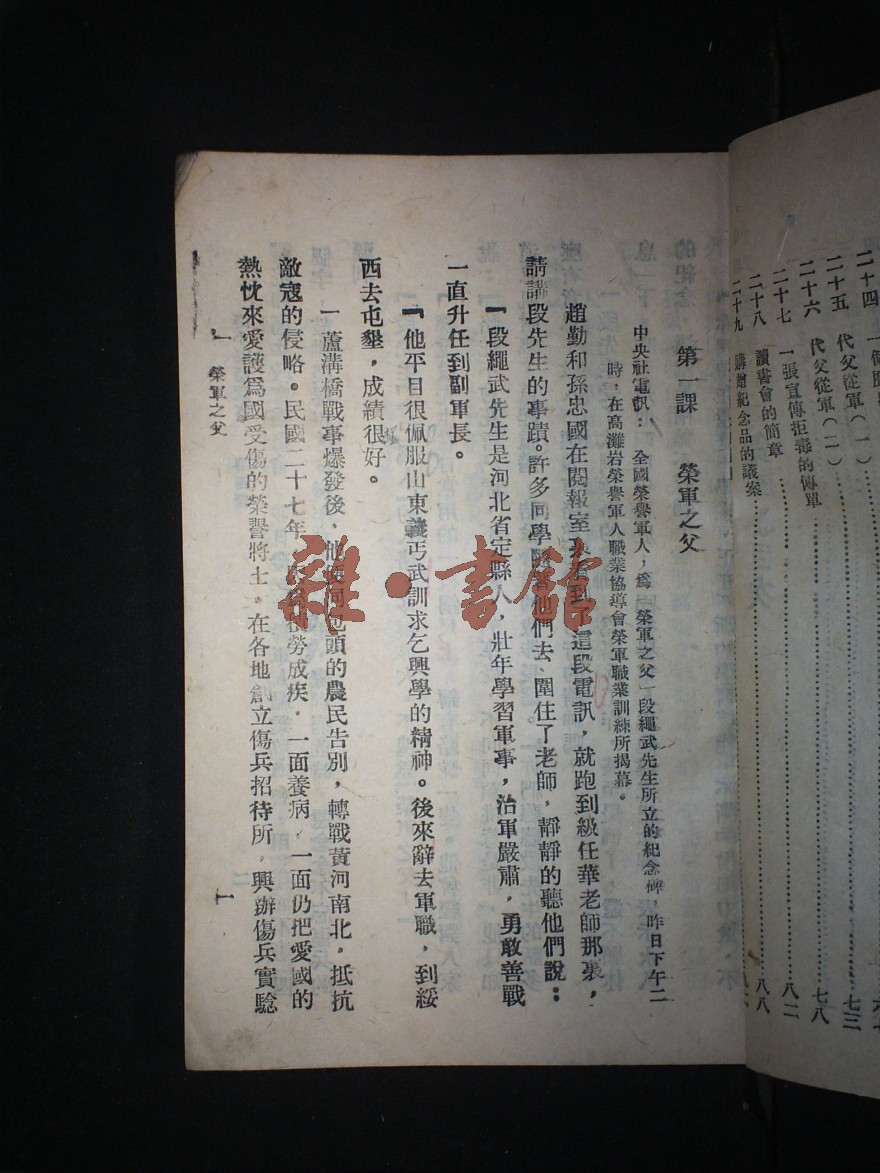 二十四
二十五 代父從軍（一） 七三
二十六 代父從軍（二） 七八
二十七 一張宣傳拒毒的傳單 八二
二十八 讀書會的簡章 八八
二十九 購贈紀念品的議案
第一課 榮軍之父
中央社電訊：全國榮譽軍人，爲「榮軍之父」段繩武先生所立的紀念碑，昨日下午二
時，在高灘岩榮譽軍人職業協導會榮軍職業訓練所揭幕。
趙勤和孫忠國在閱報室裏看到了這段電訊，就跑到級任華老師那裏，
請講段先生的事蹟。許多同學跟着他們去，圍住了老師，靜靜的聽他們說：
「段繩武先生是河北省定縣人，壯年學習軍事，治軍嚴肅，勇敢善戰
一直升任到副軍長。
「他平日很佩服山東義丐武訓求乞興學的精神。後來辭去軍職，到綏
西去屯墾，成績很好。
「蘆溝橋戰事爆發後，他便同包頭的農民告別，轉戰黃河南北，抵抗
敵寇的侵略。民國二十七年，積勞成疾，一面養病，一面仍把愛國的
熱忱來愛護爲國受傷的榮譽將士。在各地創立傷兵招待所，興辦傷兵實驗
一 榮軍之父
一
雜·書館